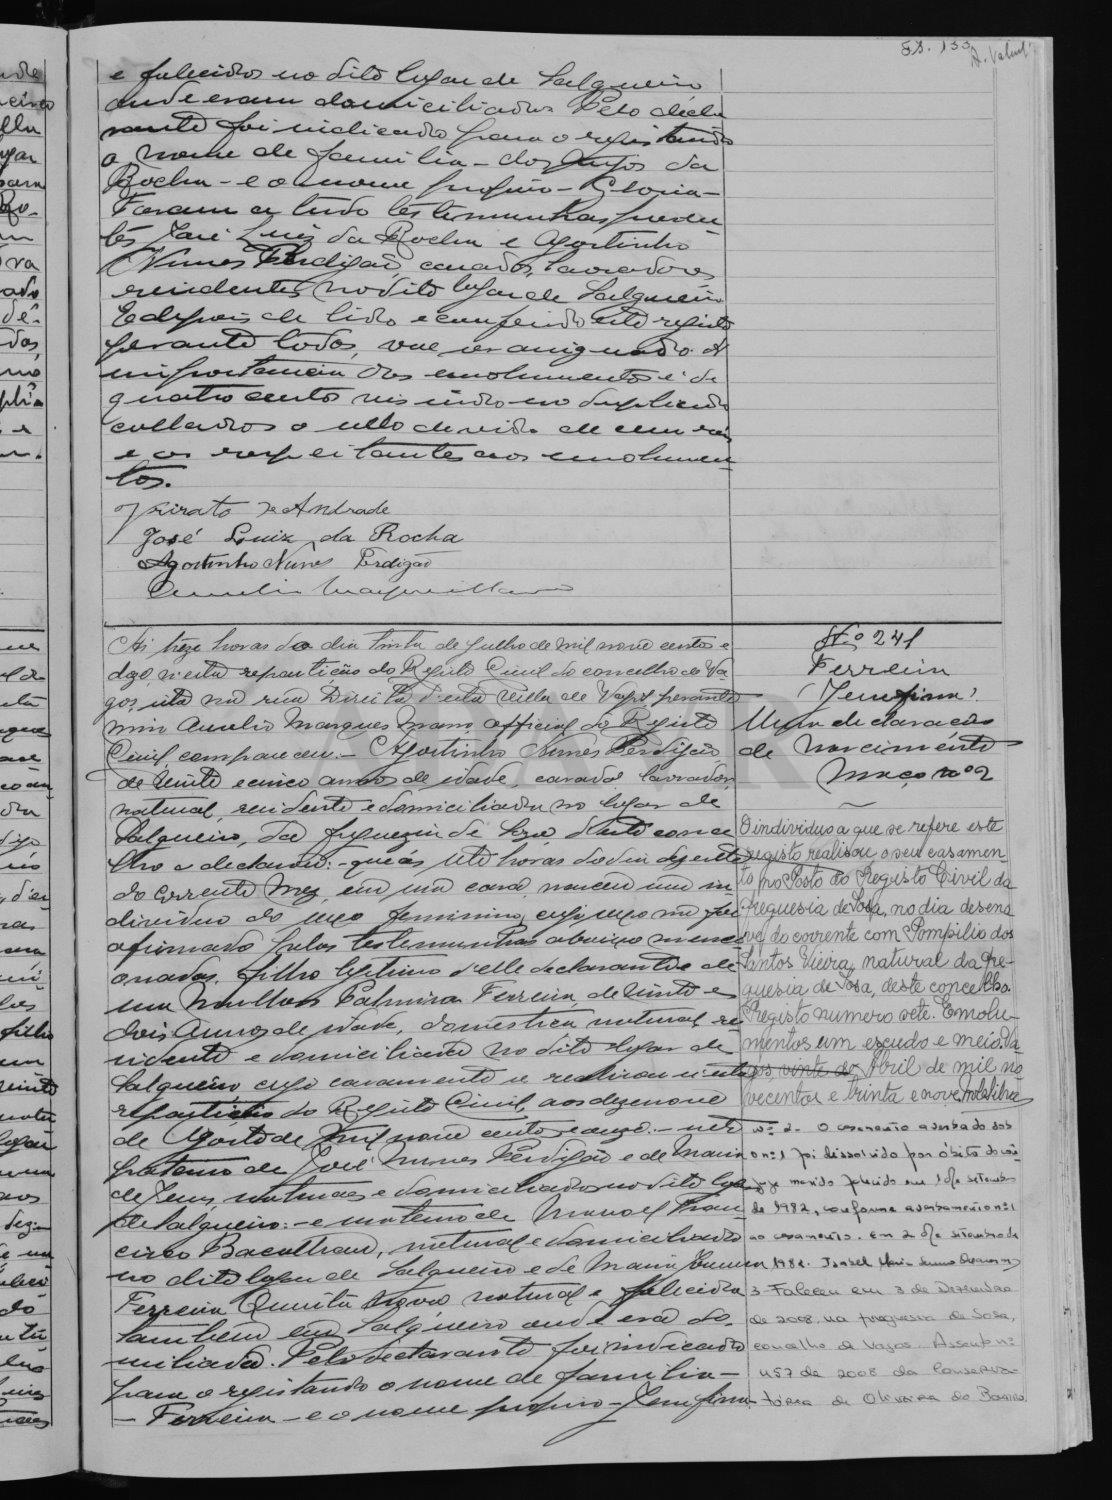 e falecidos no dito lugar de Salgueiro
onde eram domiciliados. Pelo decla
rante foi indicado para o registando
o nome de familia - dos Anjos da
Rocha - e o nome proprio - Gloria -
Foram a tudo testemunhas presen
tes José Luiz da Rocha e Agostinho
Nunes Perdigão, casados, lavradores
residentes no dito lugar de Salgueiro
E depois de lido e conferido este registo
perante todos, vae ser assignado. A
importancia dos emolumentos é de
quatrocentos reis indo no duplicado
collados o sello devido de cem reis
e os respeitantes aos emolumen
tos.
de Andrade
José Luiz da Rocha
Agostinho Nunes Perdigão
Aurelio Marques Mano
Fs. 133
Ás treze horas do dia trinta de Julho de mil nove centos e
doze n'esta repartição do Registo Civil do concelho de Va
gos, sita na rua Direita d'esta villa de Vagos perante
mim Aurelio Marques Mano, official do Registo
Civil, compareceu - Agostinho Nunes Perdigão
de vinte e cinco annos de idade, casado, lavrador,
natural, residente e domiciliado no lugar de
Salgueiro, da freguezia de Soza, d'este conce
lho e declarou: - que ás sete horas do dia dezesete
do corrente mez, em sua casa, nasceu um in
dividuo do sexo feminino, cujo sexo me foi
afirmado pelas testemunhas abaixo menci
onadas, filho legitimo d'elle declarante e de
sua mulher Palmira Ferreira, de vinte e
dois annos de idade, domestica, natural, re
sidente e domiciliada no dito lugar de
Salgueiro cujo casamento se realisou n'esta
repartição do Registo Civil, aos dezenove
de Agosto de mil nove cento e onze. - neto
paterno de José Nunes Perdigão e de Maria
de Jesus, naturaes e domiciliados no dito lugar
de Salgueiro: - e materno de Manoel Fran
cisco Bacalhau, natural e domiciliado
no dito lugar de Salgueiro e de Maria
Ferreira natural e falecida
tambem em Salgueiro onde era do
miciliada. Pelo declarante foi indicado
para o registando o nome de familia -
- Ferreira - e o nome proprio -
Nº 241
Ferreira
Uma declaração
de nascimento
Maço nº 2
O individuo a que se refere este
registo realisou o seu casamen
to no Posto do Registo Civil da
freguesia de Sosa, no dia desena
ve do corrente com Pompilio dos
Santos Vieira, natural da fre-
guesia de Sosa, deste concelho.
Registo numero sete. Emolu-
mentos um escudo e meio. Va
gos, vinte de Abril de mil no
vecentos e trinta e nove.
Nº 2 - O casamento averbado sob
o nº 1 foi dissolvido por óbito do côn-
juge marido falecido em 1 de setembro
de 1982, conforme averbamento nº 1
ao casamento. Em 2 de setembro de
1982. Isabel Maria
3 - Faleceu em 3 de Dezembro
de 2008, na freguesia de Sosa,
concelho de Vagos. Assento nº
457 de 2008 da Conserva-
tória de Oliveira do Bairro.